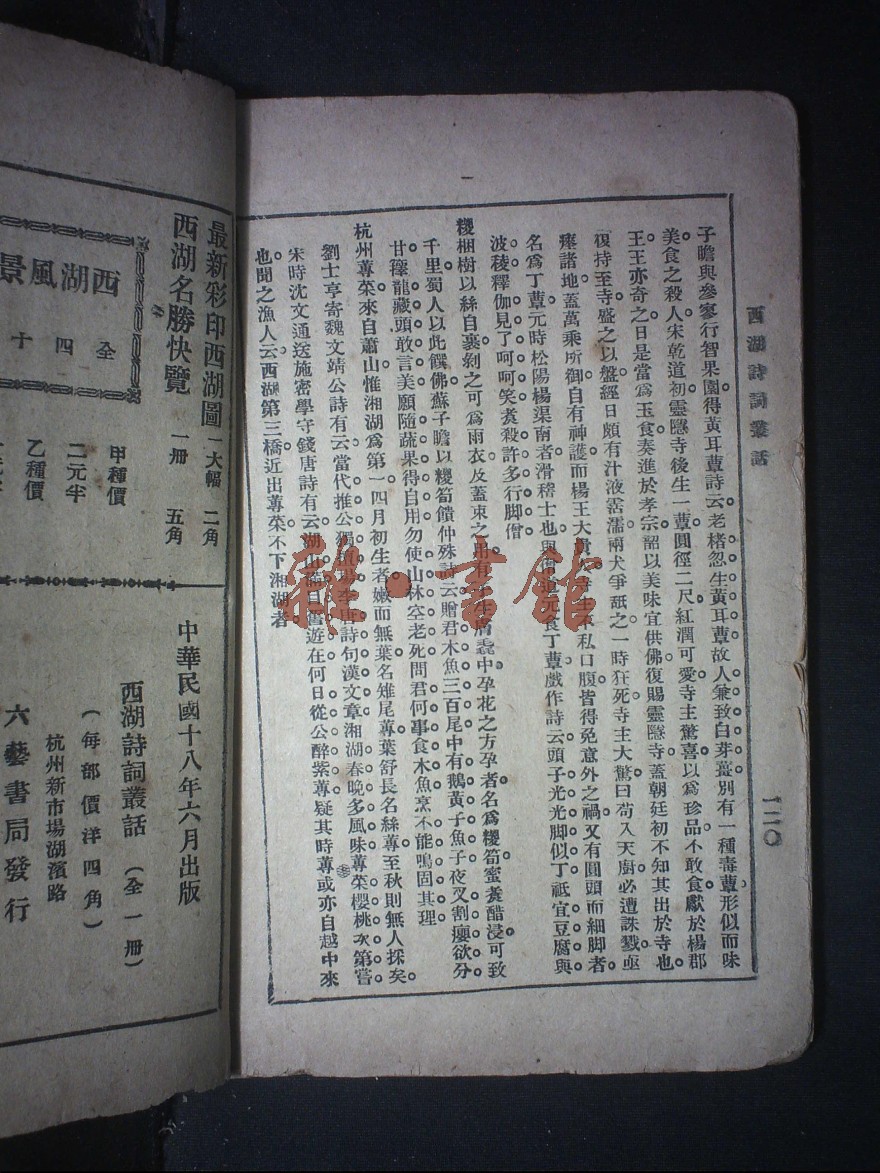 西湖詩詞叢話
一二〇
子瞻與參寥行智果園得黃耳蕈詩云老楮忽生黃耳蕈故人兼致白芽薑別有一種毒蕈形似而味
美食之殺人宋乾道初靈隱寺後生一蕈圓徑二尺紅潤可愛寺主驚喜以爲珍品不敢食獻於楊郡
王王亦奇之曰是當爲玉食奏進於孝宗詔以美味宜供佛復賜靈隱寺蓋朝廷初不知其出於寺也
復持至寺盛之以盤經日頗有汁液霑濡兩犬爭舐之一時狂死寺主大驚曰苟入天廚必遭誅戮亟
瘞諸地蓋萬乘所御自有神護而楊王大貴人 不私口腹皆得免意外之禍又有圓頭而細脚者
名爲丁蕈元時松陽楊渠南者滑稽士也與 元食丁蕈戲作詩云頭子光光脚似丁祗宜豆腐與
波稜釋伽見了呵呵笑煑殺許多行脚僧
椶梱樹以絲自裹剝之可爲雨衣及蓋束之用有子生膚毳中孕花之方孕者名爲椶筍蜜煑醋浸可致
千里蜀人以此饌佛蘇子瞻以椶筍饋仲殊詩云贈君木魚三百尾中有鵝黃子魚子夜叉割癭欲分
甘籜龍藏頭敢言美願隨蔬果得自用勿使山林空老死問君何事食木魚烹不能鳴固其理
杭州蓴菜來自蕭山惟湘湖爲第一四月初生者嫩而無葉名雉尾蓴葉舒長名絲蓴至秋則無人採矣
劉士亨寄魏文靖公詩有云當代推公獨 李唐詩句漢文章湘湖春晚多風味蓴菜櫻桃次第嘗
宋時沈文通送施密學守錢唐詩有云湖山滿目舊遊在何日從公醉紫蓴疑其時蓴或亦自越中來
也聞之漁人云西湖第三橋近出蓴菜不下湘湖者
最新彩印西湖圖 一大幅 二角
西湖名勝快覽 一册 五角
西湖風景
全四十
甲種價
二元半
乙種價
中華民國十八年六月出版
西湖詩詞叢話（全一册）
（每部價洋四角）
杭州新市場湖濱路
六藝書局發行
雜·書館